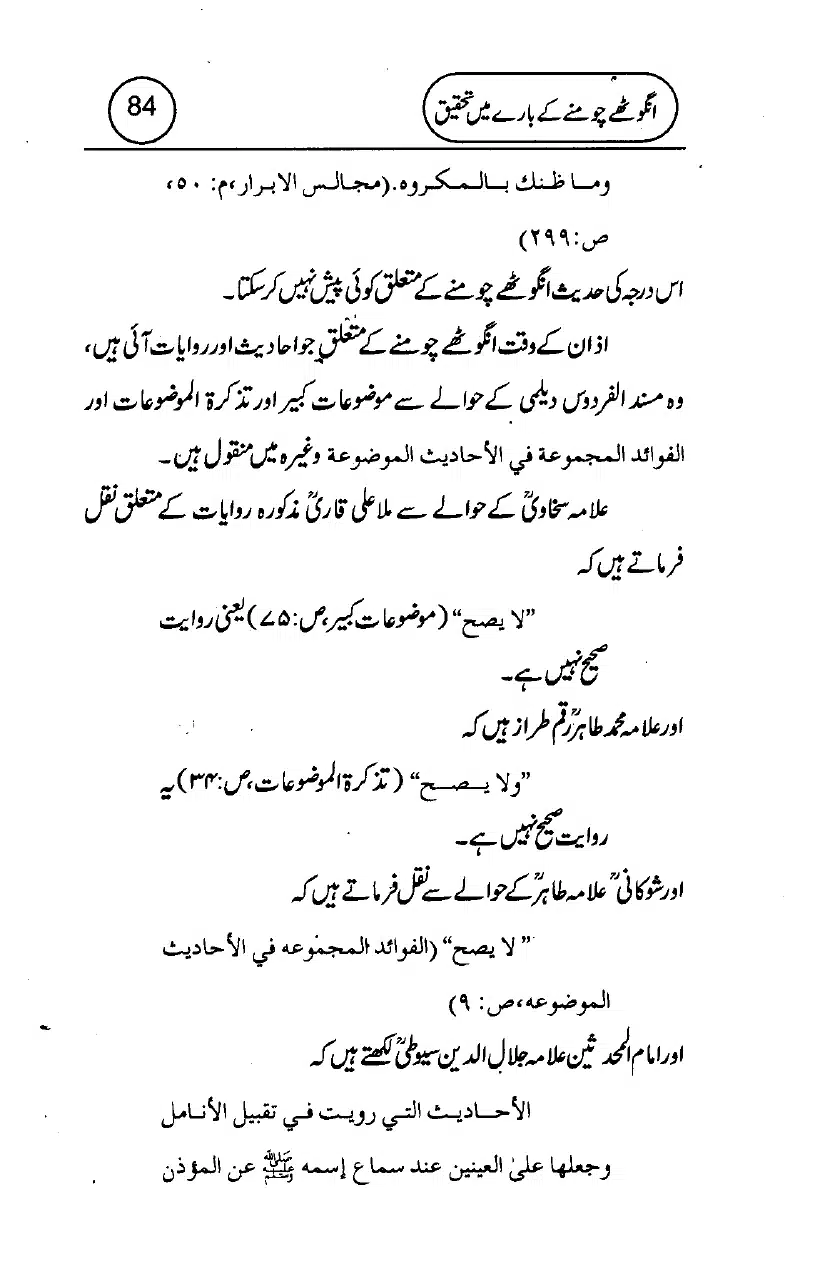 84
انگوٹھے چومنے کے بارے میں تحقیق
ومـا ظنك بـالـمكروه. (مجالس الابرار، م: ۵۰،
ص: ۲۹۹)
اس درجہ کی حدیث انگوٹھے چومنے کے متعلق کوئی پیش نہیں کرسکتا۔
اذان کے وقت انگوٹھے چومنے کے متعلق جو احادیث اور روایات آئی ہیں،
وہ مسند الفردوس دیلمی کے حوالے سے موضوعات کبیر اور تذکرۃ الموضوعات اور
الفوائد المجموعة في الأحاديث الموضوعة وغیرہ میں منقول ہیں۔
علامہ سخاویؒ کے حوالے سے ملا علی قاریؒ مذکورہ روایات کے متعلق نقل
فرماتے ہیں کہ
”لا یصح“ (موضوعات کبیر، ص: ۷۵) یعنی روایت
صحیح نہیں ہے۔
اور علامہ محمد طاہرؒ رقم طراز ہیں کہ
”ولا يـصـح“ (تذکرۃ الموضوعات، ص: ۳۴) یہ
روایت صحیح نہیں ہے۔
اور شوکانیؒ علامہ طاہرؒ کے حوالے سے نقل فرماتے ہیں کہ
” لا يصح“ (الفوائد المجموعه في الأحاديث
الموضوعه، ص: ۹)
اور امام المحدثین علامہ جلال الدین سیوطیؒ لکھتے ہیں کہ
الأحـاديـث التـي رويـت فـي تقبيل الأنـامل
وجعلها علىٰ العينين عند سماع إسمه ﷺ عن المؤذن